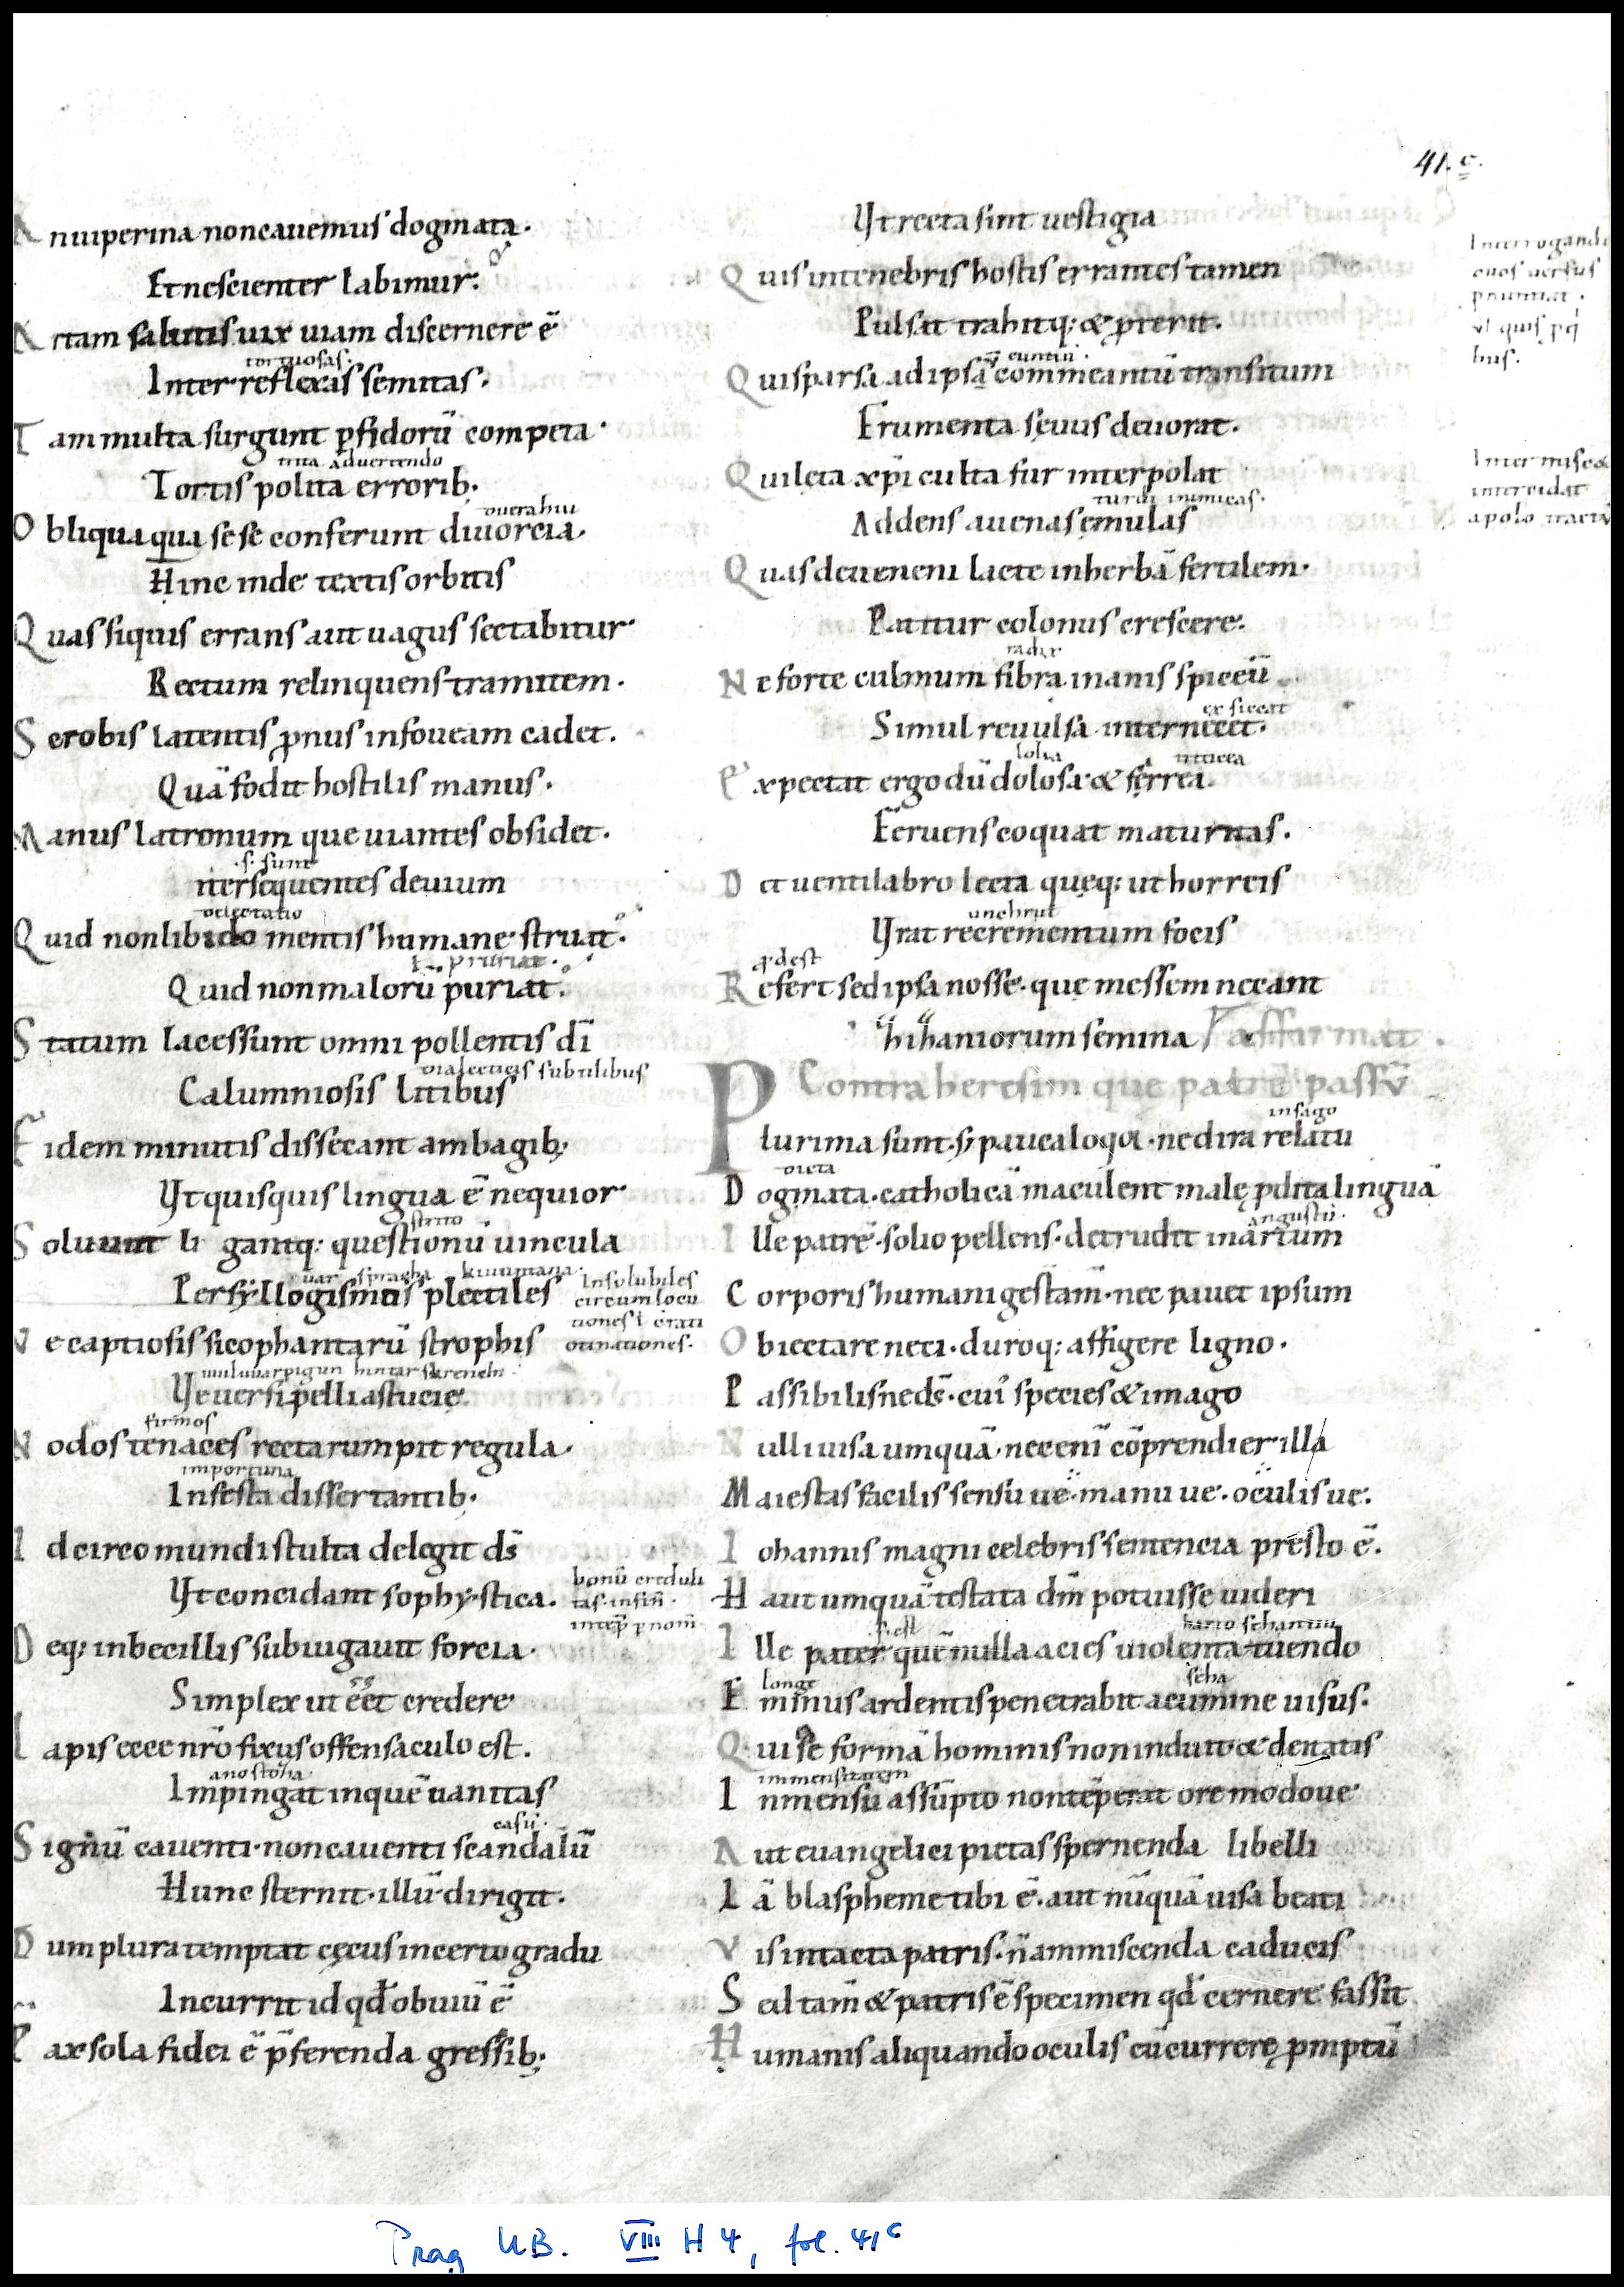 41.c.
An uiperina non cauemus dogmata.
Et nescienter labimur.
Artam salutis uix uiam discernere ē
tortuosas.
Inter reflexas semitas.
Tam multa surgunt ꝑfidorū competa.
trita aduertendo
Tortis polita errorib;.
duerahiu
Obliqua qua sese conferunt diuorcia.
Hinc inde textis orbitis
Quas siquis errans aut uagus sectabitur
Rectum relinquens tramitem.
Scrobis latentis ꝓnus in foueam cadet.
Quā fodit hostilis manus.
Manus latronum que uiantes obsidet.
.s. sunt
iter sequentes deuium
delectatio
Quid non libido mentis humane struat.
pruriat.
Quid non malorū puriat.
Statum lacessunt omni pollentis dī
dialecticis subtilibus
Calumniosis litibus
Fidem minutis dissecant ambagib;.
Vt quisquis lingua ē nequior
Soluunt li gantq; questionū uincula
Per syllogismos plectiles
Insolubiles
circumlocu
tiones
otinationes.
Ve captiosis sicophantarū strophis
Ve uersipelli astucie.
firmos
Nodos tenaces recta rumpit regula.
importuna
Infesta dissertantib;.
Idcirco mundi stulta delegit ds̄
Vt concidant sophystica.
bonū creduli
tas
Deq; inbecillis subiugauit forcia.
Simplex ut eēt credere
Lapis ecce nr̄o fixus offensaculo est.
anostoha
Impingat in quē uanitas
casū.
Signū cauenti. non cauenti scandalū
Hunc sternit. illū dirigit.
Dum plura temptat cęcus incerto gradu
Incurrit id qd̄ obuiū ē
Pax sola fidei ē p̄ferenda gressib;.
Vt recta sint uestigia
Quis in tenebris hostis errantes tamen
Pulsat trahitq; & ꝓterit.
euntiū.
Qui sparsa ad ipsā commeantū transitum
Frumenta sęuus deuorat.
Qui lęta xp̄i culta fur interpolat
inimicas.
Addens auenas ęmulas
Quas de ueneni lacte in herbā fertilem.
Patitur colonus crescere.
radix
Ne forte culmum fibra inanis spiceū
exsiccat
Simul reuulsa internecet.
lolia
triticea
Expectat ergo dū dolosa & ferrea.
Feruens coquat maturitas.
Det uentilabro lecta quęq; ut horreis
unchrut
Vrat recrementum focis
ꝓdest
Refert sed ipsa nosse. quę messem necant
hihaniorum semina affirmat.
Contra heresim que patrē passū
insago
Plurima sunt. s; pauca loqor. ne dira relatu
dicta
Dogmata. catholicā maculent malę ꝑdita linguā
angustū.
Ille patrē. solio pellens. detrudit in artum
Corporis humani gestam. nec pauet ipsum
Obiectare neci. duroq; affigere ligno.
Passibilisne ds̄. cui' species & imago
Nulli uisa umquā. nec enī cōprendier illa
Maiestas facilis sensu ue. manu ue. oculis ue.
Iohannis magni celebris sentencia presto ē.
Haut umquā testata dm̄ potuisse uideri
s. est
harto sehantiu
Ille pater quē nulla acies uiolenta tuendo
longe
Eminus ardentis penetrabit acumine uisus.
Qui se formā hominis non induit & deitatis
immensitatem
Inmensū assūpto nontēperat ore modoue
Aut euangelici pietas spernenda libelli
Iā blaspheme tibi ē. aut nūquā uisa beati
Vis intacta patris. n̄ ammiscenda caducis
Sed tam̄ & patris ē specimen qd̄ cernere fas sit
Humanis aliquando oculis cū currere prnptū
Interrogandi
onos uersus
pnuntiat.
Inter mise&
intercidat
Prag UB. VIII H 4, fol. 41c